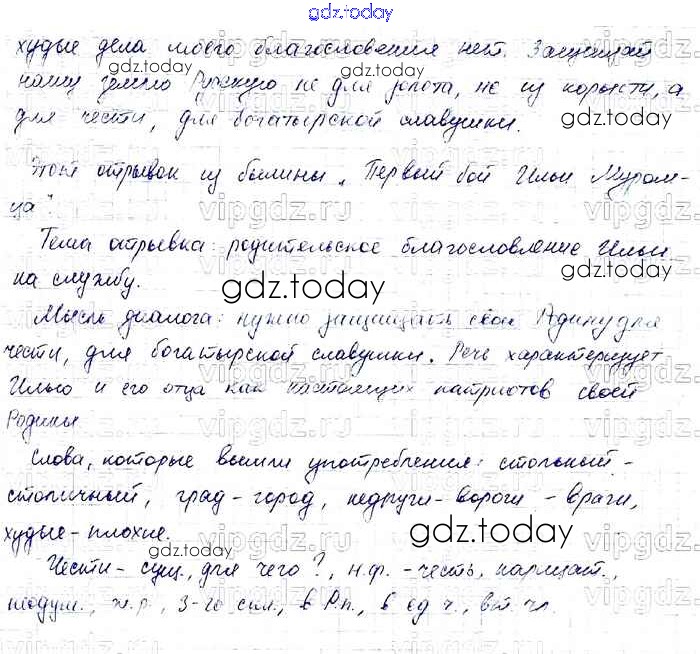 gdz.today
худые дела моего благословения нет. Защищай
gdz.today
нашу землю Русскую не для золота, не из корысти, а
для чести, для богатырской славушки.
gdz.today
Этот отрывок из былины „Первый бой Ильи Муром-
ца"
Тема отрывка: родительское благословление Ильи
на службу.
gdz.today
gdz.today
Мысль диалога: нужно защищать свою Родину для
чести, для богатырской славушки. Речь характеризует
Илью и его отца как настоящих патриотов своей
Родины
Слова, которые вышли употребления: стольный -
столичный, град - город, недруги - вороги - враги,
худые - плохие.
gdz.today
gdz.today
Чести - сущ., для чего?, н.ф. - честь, нарицат.,
неодуш., ж.р., 3-го скл., в Р.п., в ед.ч., вт. чл.
vipgdz.ru